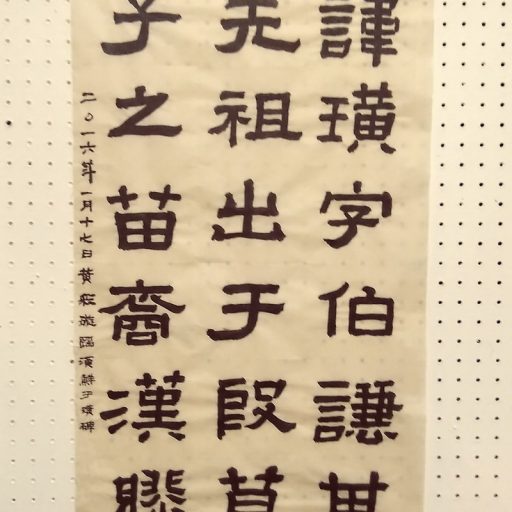 諱璜字伯謙其
先祖出于殷箕
子之苗裔漢膠
二〇一六年一月十七日黄臨漢鮮于璜碑